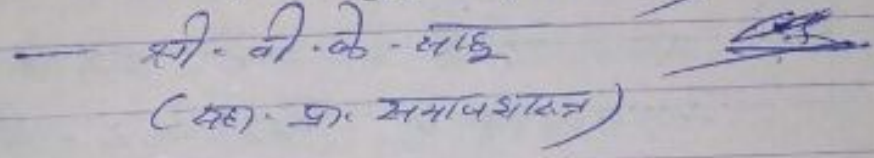 — श्री. वी. के. साहू
(सहा. प्रा. समाजशास्त्र)